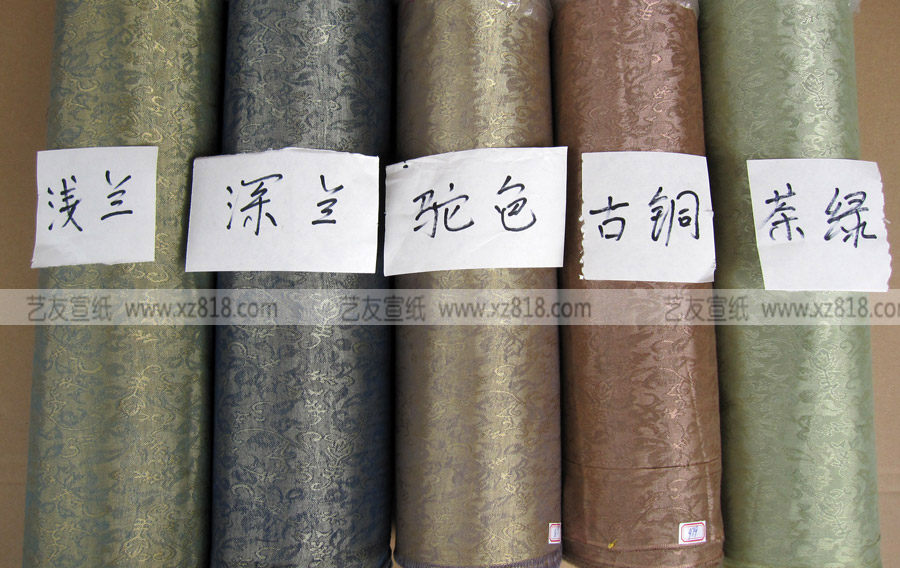 浅兰
深兰
驼色
古铜
茶绿
艺友宣纸 www.xz818.com 艺友宣纸 www.xz818.com 艺友宣纸 www.xz818.com